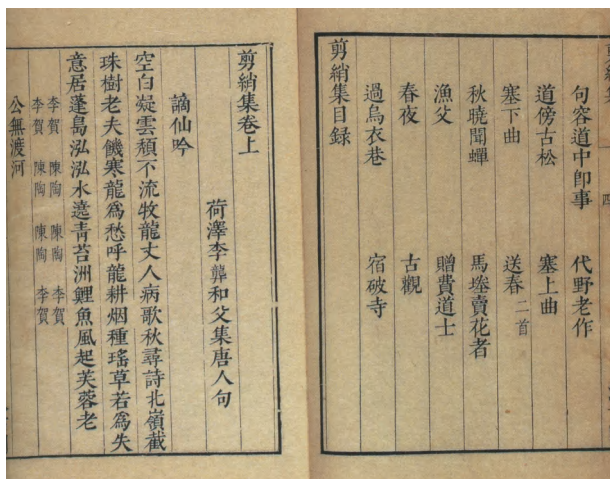 四
句容道中即事 代野老作
道傍古松 塞上曲
塞下曲 送春二首
秋曉聞蟬 馬塍賣花者
漁父 贈費道士
春夜 古觀
過烏衣巷 宿破寺
剪綃集目録
剪綃集卷上
荷澤李龏和父集唐人句
謫仙吟
空白凝雲頹不流牧龍丈人病歌秋尋詩北嶺截
珠樹老夫饑寒龍爲愁呼龍耕烟種瑤草若爲失
意居蓬島泓泓水遶青苔洲鯉魚風起芙蓉老
李賀 陳陶 陳陶 李賀
李賀 陳陶 陳陶 李賀
公無渡河